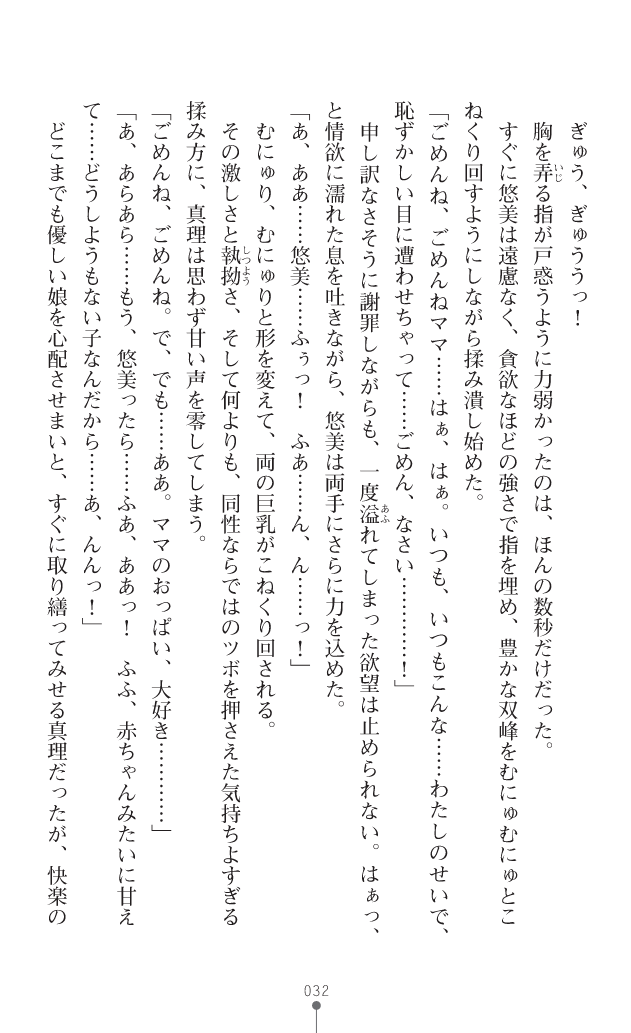 ぎゅう、ぎゅううっ！
胸を弄る指が戸惑うように力弱かったのは、ほんの数秒だけだった。
すぐに悠美は遠慮なく、貪欲なほどの強さで指を埋め、豊かな双峰をむにゅむにゅとこ
ねくり回すようにしながら揉み潰し始めた。
「ごめんね、ごめんねママ……はぁ、はぁ。いつも、いつもこんな……わたしのせいで、
恥ずかしい目に遭わせちゃって……ごめん、なさい…………！」
申し訳なさそうに謝罪しながらも、一度溢れてしまった欲望は止められない。はぁっ、
と情欲に濡れた息を吐きながら、悠美は両手にさらに力を込めた。
「あ、ああ……悠美……ふぅっ！　ふあ……ん、ん……っ！」
むにゅり、むにゅりと形を変えて、両の巨乳がこねくり回される。
その激しさと執拗さ、そして何よりも、同性ならではのツボを押さえた気持ちよすぎる
揉み方に、真理は思わず甘い声を零してしまう。
「ごめんね、ごめんね。で、でも……ああ。ママのおっぱい、大好き…………」
「あ、あらあら……もう、悠美ったら……ふあ、ああっ！　ふふ、赤ちゃんみたいに甘え
て……どうしようもない子なんだから……あ、んんっ！」
どこまでも優しい娘を心配させまいと、すぐに取り繕ってみせる真理だったが、快楽の
032